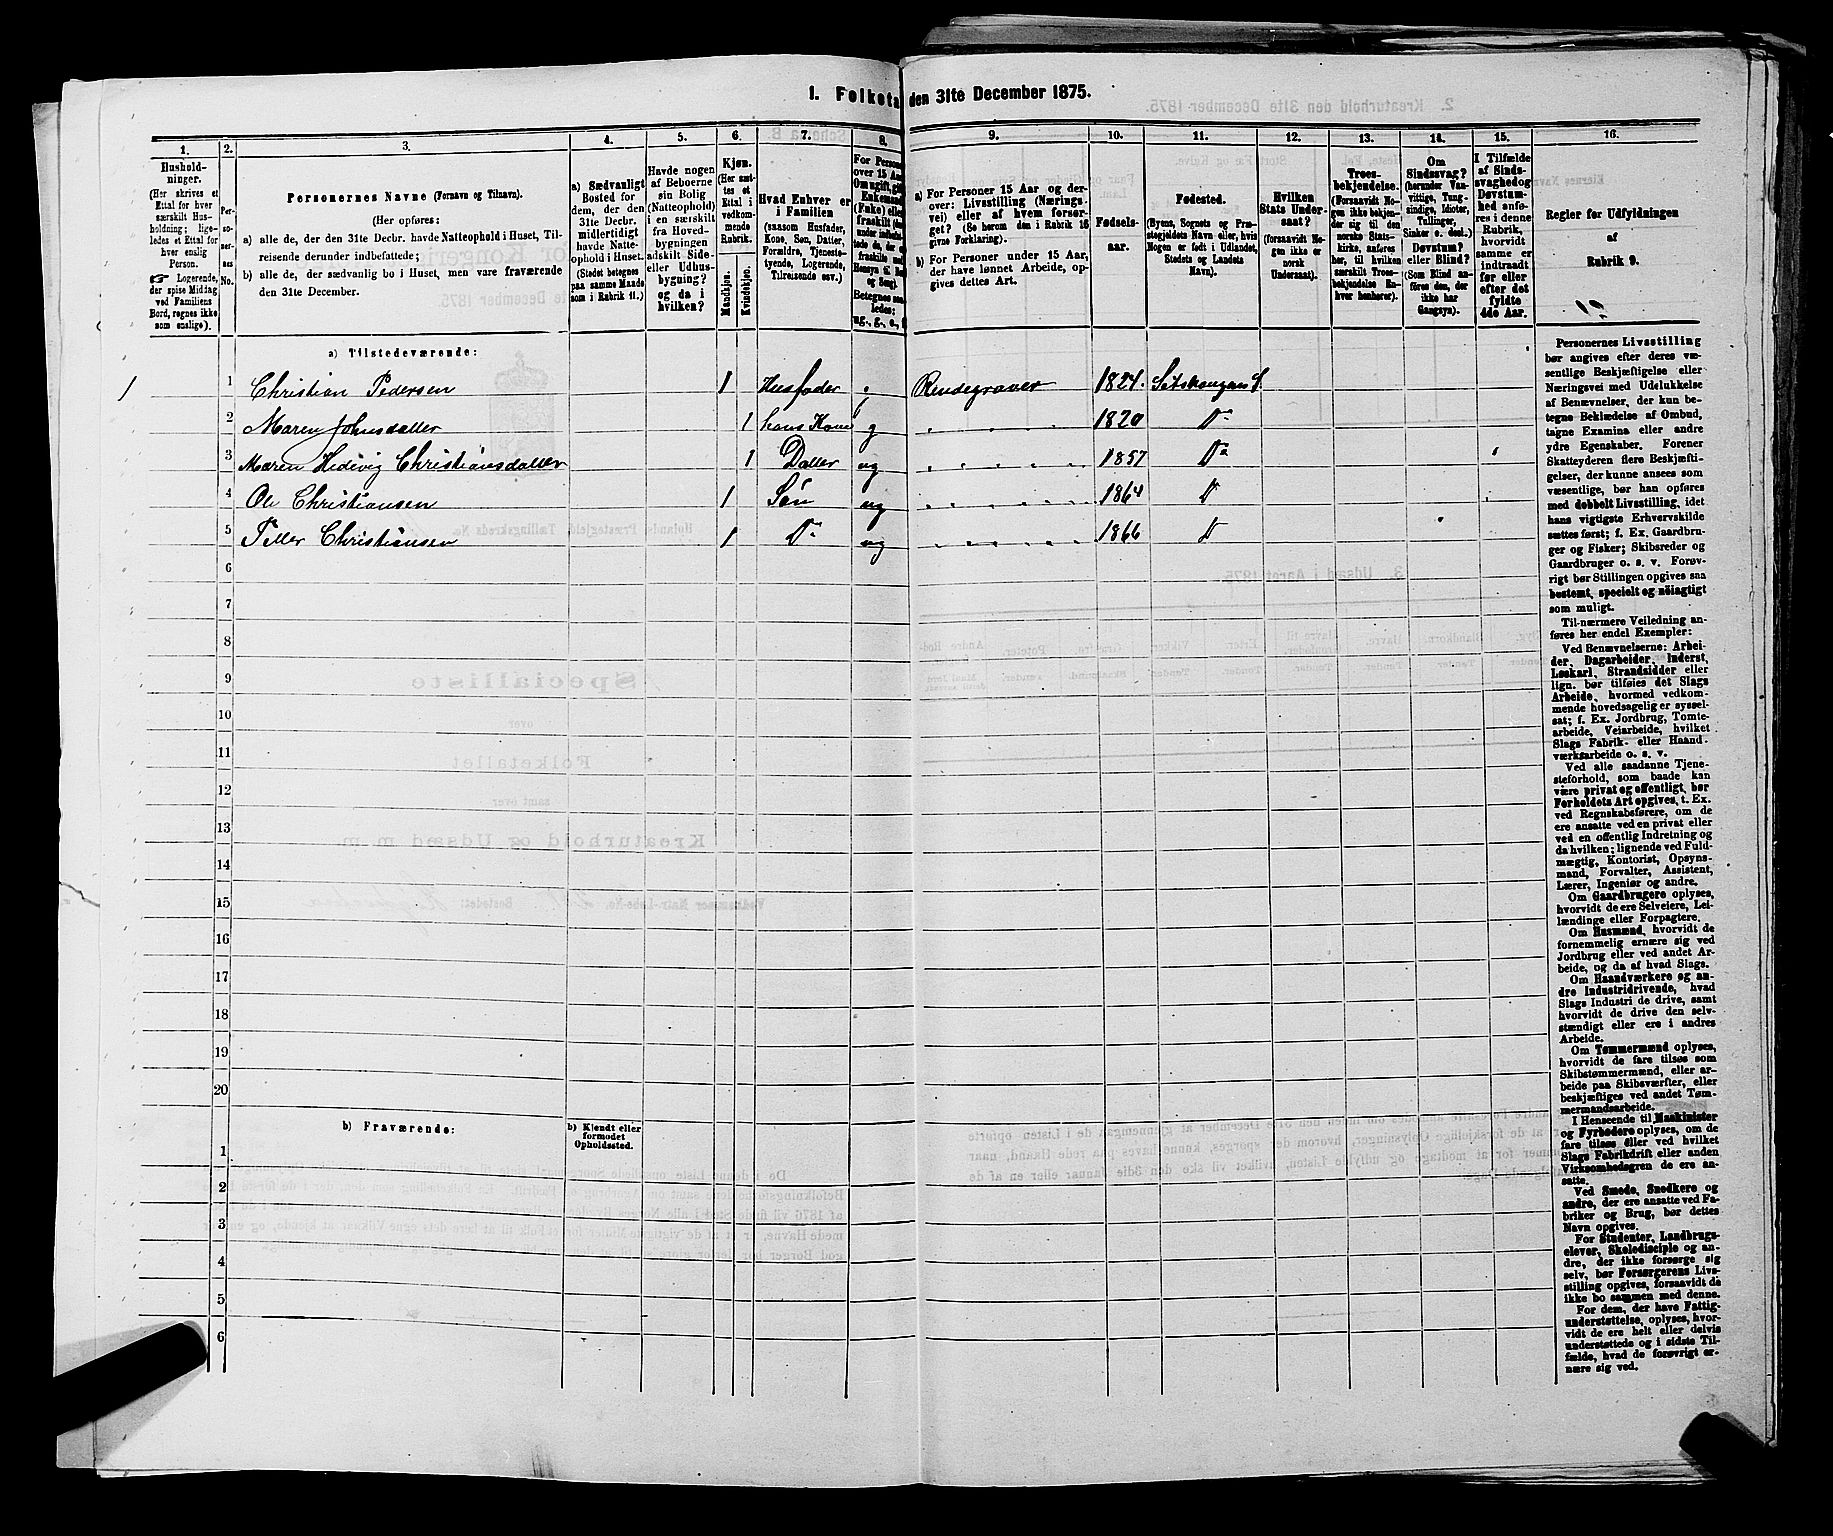 1. Folketa den 31te December 1875.
1.
Hushold-
ninger.
(Her skrives et
Ettal for hver
særskilt Hus-
holdning; lige-
ledes et Ettal for
hver enslig
Person.
☞ Logerende,
der spise Middag
ved Familiens
Bord, regnes ikke
som enslige).
2.
Per-
so-
ner-
nes
No.
3.
Personernes Navne (Fornavn og Tilnavn).
(Her opføres:
a) alle de, der den 31te Decbr. havde Natteophold i Huset, Til-
reisende derunder indbefattede;
b) alle de, der sædvanlig bo i Huset, men vare fraværende
den 31te December.
4.
a) Sædvanligt
Bosted for
dem, der den
31te Decbr.
midlertidigt
havde Natte-
ophold i Huset.
(Stedet betegnes
paa samme Maade
som i Rubrik 11.)
5.
Havde nogen
af Beboerne
sin Bolig
(Natteophold)
i en særskilt
fra Hoved-
bygningen
adskilt Side-
eller Udhus-
bygning?
og da i
hvilken?
6.
Kjøn.
(Her sæt-
tes et
Ettal i
vedkom-
mende
Rubrik.
Mandkjøn.
Kvindekjøn.
7.
Hvad Enhver er
i Familien
(saasom Husfader,
Kone, Søn, Datter,
Forældre, Tjeneste-
tyende, Logerende,
Tilreisende osv.)
8.
For Personer
over 15 Aar
9.
a) For Personer 15 Aar og der-
over: Livsstilling (Nærings-
vei) eller af hvem forsør-
get? (Se herom den i Rubrik 16
givne Forklaring).
b) For Personer under 15 Aar,
der have lønnet Arbeide, op-
gives dettes Art.
10.
Fødsels-
aar.
11.
Fødested.
(Byens, Sognets og Præ-
stegjeldets Navn eller, hvis
Nogen er født i Udlandet,
Stedets og Landets
Navn).
12.
Hvilken
Stats Under-
saat?
(forsaavidt No-
gen ikke er
norsk
Undersaat).
13.
Troes-
bekjendelse.
(Forsaavidt No-
gen ikke bekjen-
der sig til den
norske Stats-
kirke, anføres
her, til hvilken
særskilt Troes-
bekjendelse En-
hver henhører).
14.
Om
Sindssvag?
(herunder Van-
vittige, Tung-
sindige, Idioter,
Tullinger,
Sinker o. desl.)
Døvstum?
eller Blind?
(Som Blind an-
føres den, der
ikke har
Gangsyn).
15.
I Tilfælde
af Sinds-
svaghed og
Døvstum-
hed anfø-
res i denne
Rubrik,
hvorvidt
samme er
indtraadt
før eller
efter det
fyldte
4de Aar.
16.
Regler for Udfyldningen
af
Rubrik 9.
a) Tilstedeværende:
1 1 Christian Pedersen 1 Husfader g 1824. S.
2 Maren Johnsdatter 1 hans Kone g " " 1820 Do
3 Maren Hedevig Christiansdatter 1 Datter ug " " " " 1857 Do
4 Ole Christiansen 1 Søn ug " " " " 1864 D
5 Petter Christiansen 1 Do ug " " " " 1866 D
6
7
8
9
10
11
12
13
14
15
16
17
18
19
20
b) Fraværende:
b) Kjendt eller
formodet
Opholdssted.
1
2
3
4
5
6
Personernes Livsstilling
bør angives efter deres væ-
sentlige Beskjæftigelse eller
Næringsvei med Udelukkelse
af Benævnelser, der kun be-
tegne Beklædelse af Ombud,
tagne Examina eller andre
ydre Egenskaber. Forener
Skatteyderen flere Beskjæfti-
gelser, der kunne ansees som
væsentlige, bør han opføres
med dobbelt Livsstilling, idet
hans vigtigste Erhvervskilde
sættes først; f. Ex. Gaardbru-
ger og Fisker; Skibsreder og
Gaardbruger o. s. v. Forøv-
rigt bør Stillingen opgives saa
bestemt, specielt og nøiagtigt
som muligt.
Til nærmere Veiledning an-
føres her endel Exempler:
Ved Benævnelserne: Arbei-
der, Dagarbeider, Inderst,
Løskarl, Strandsidder eller
lign. bør tilføies det Slags
Arbeide, hvormed vedkom-
mende hovedsagelig er syssel-
sat; f. Ex. Jordbrug, Tomte-
arbeide, Veiarbeide, hvilket
Slags Fabrik- eller Haand-
værksarbeide o. s. v.
Ved alle saadanne Tjene-
steforhold, som baade kan
være privat og offentligt, bør
Forholdets Art opgives, t. Ex.
ved Regnskabsførere, om de
ere ansatte ved en privat eller
ved en offentlig Indretning og
da hvilken; lignende ved Fuld-
mægtig, Kontorist, Opsyns-
mand, Forvalter, Assistent,
Lærer, Ingeniør og andre.
Om Gaardbrugere oplyses,
hvorvidt de ere Selveiere, Lei-
lændinge eller Forpagtere.
Om Husmænd, hvorvidt de
fornemmelig ernære sig ved
Jordbrug eller ved andet Ar-
beide, og da af hvad Slags.
Om Haandværkere og an-
dre Industridrivende, hvad
Slags Industri de drive, samt
hvorvidt de drive den selv-
stændigt eller ere i andres
Arbeide.
Om Tømmermænd oplyses,
hvorvidt de fare tilsøs som
Skibstømmermænd, eller ar-
beide paa Skibsværfter, eller
beskjæftiges ved andet Tøm-
mermandsarbeide.
I Henseende til Maskinister
og Fyrbødere oplyses, om de
fare tilsøs eller ved hvilket
Slags Fabrikdrift eller anden
Virksomhedsgren de ere an-
satte.
Ved Smede, Snedkere og
andre, der ere ansatte ved Fa-
briker og Brug, bør dettes
Navn opgives.
For Studenter, Landbrugs-
elever, Skoledisciple og an-
dre, der ikke forsørge sig
selv, bør Forsørgerens Livs-
stilling opgives, forsaavidt de
ikke bo sammen med denne.
For dem, der have Fattig-
understøttelse, oplyses, hvor-
vidt de ere helt eller delvis
understøttede og i sidste Til-
fælde, hvad de forøvrigt er-
nære sig ved.